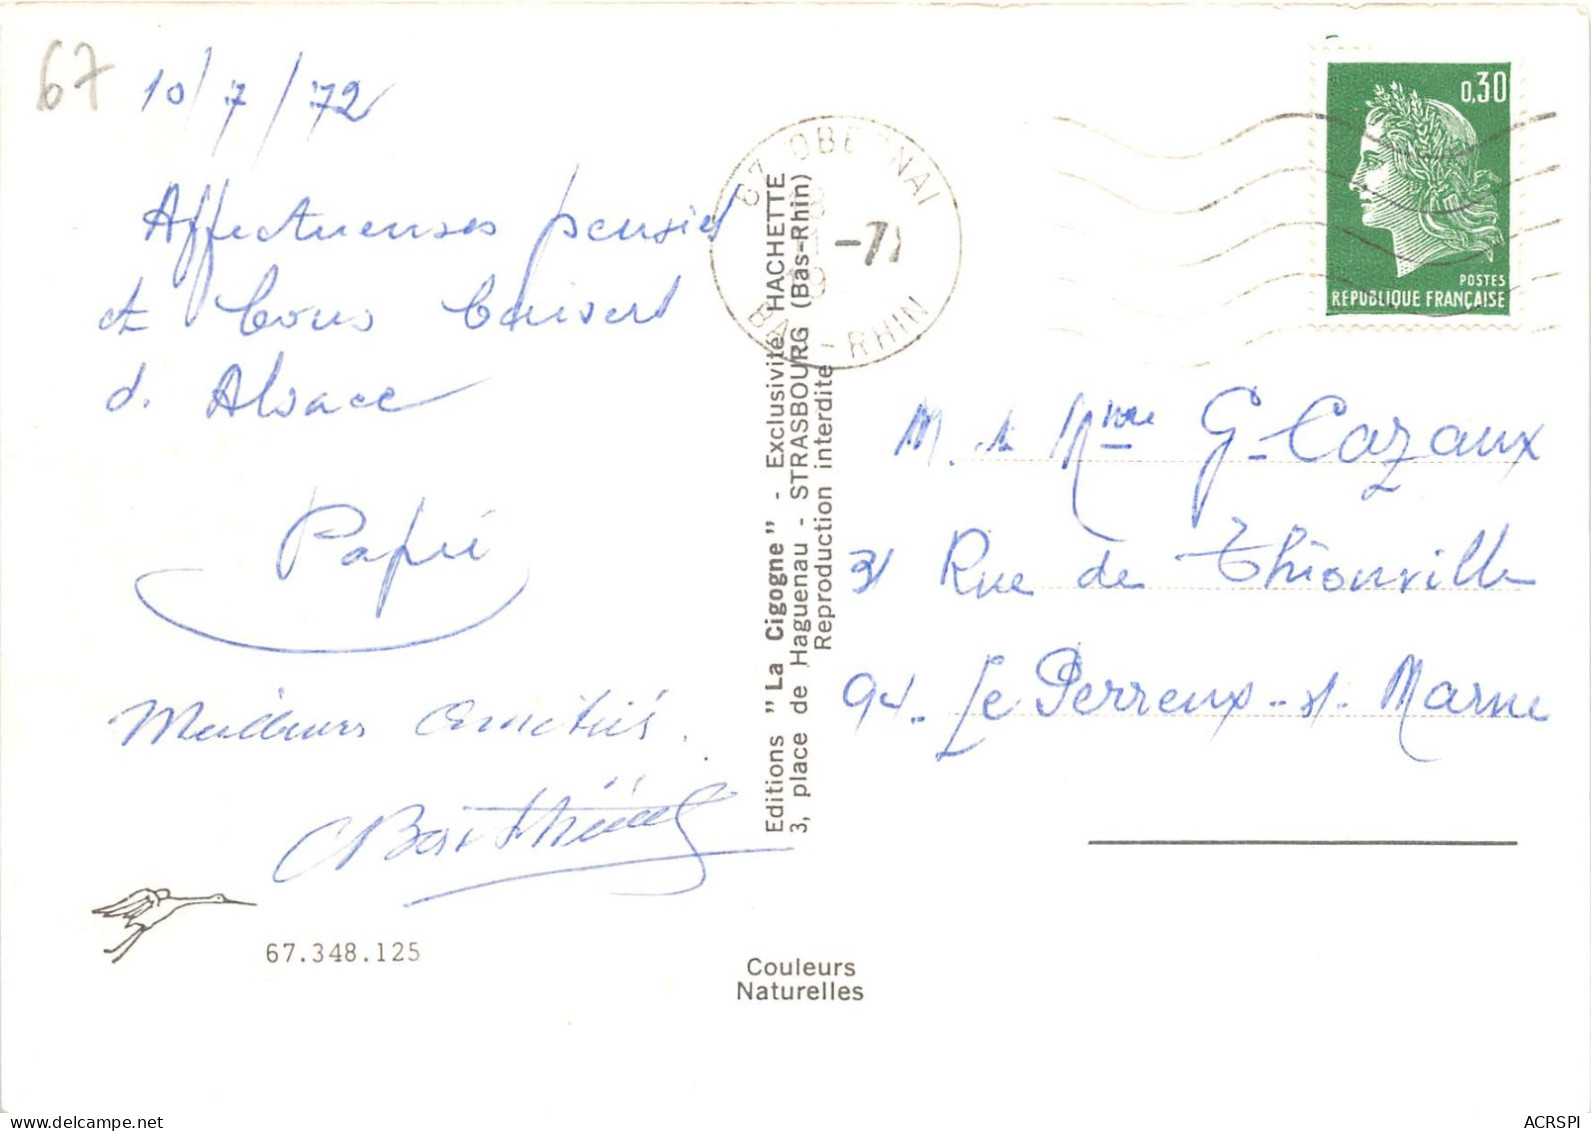 67
10/7/72
Affectueuses pensées
et bons baisers
d. Alsace
Papi
Meilleures amitiés.
67.348.125
Couleurs
Naturelles
Editions "La Cigogne" - Exclusivité HACHETTE
3, place de Haguenau - STRASBOURG (Bas-Rhin)
Reproduction interdite
67 OBERNAI
BAS-RHIN
0,30
POSTES
REPUBLIQUE FRANÇAISE
M. & Mme G. Cazaux
31 Rue de Thionville
94. Le Perreux-s/-Marne
www.delcampe.net
ACRSPI